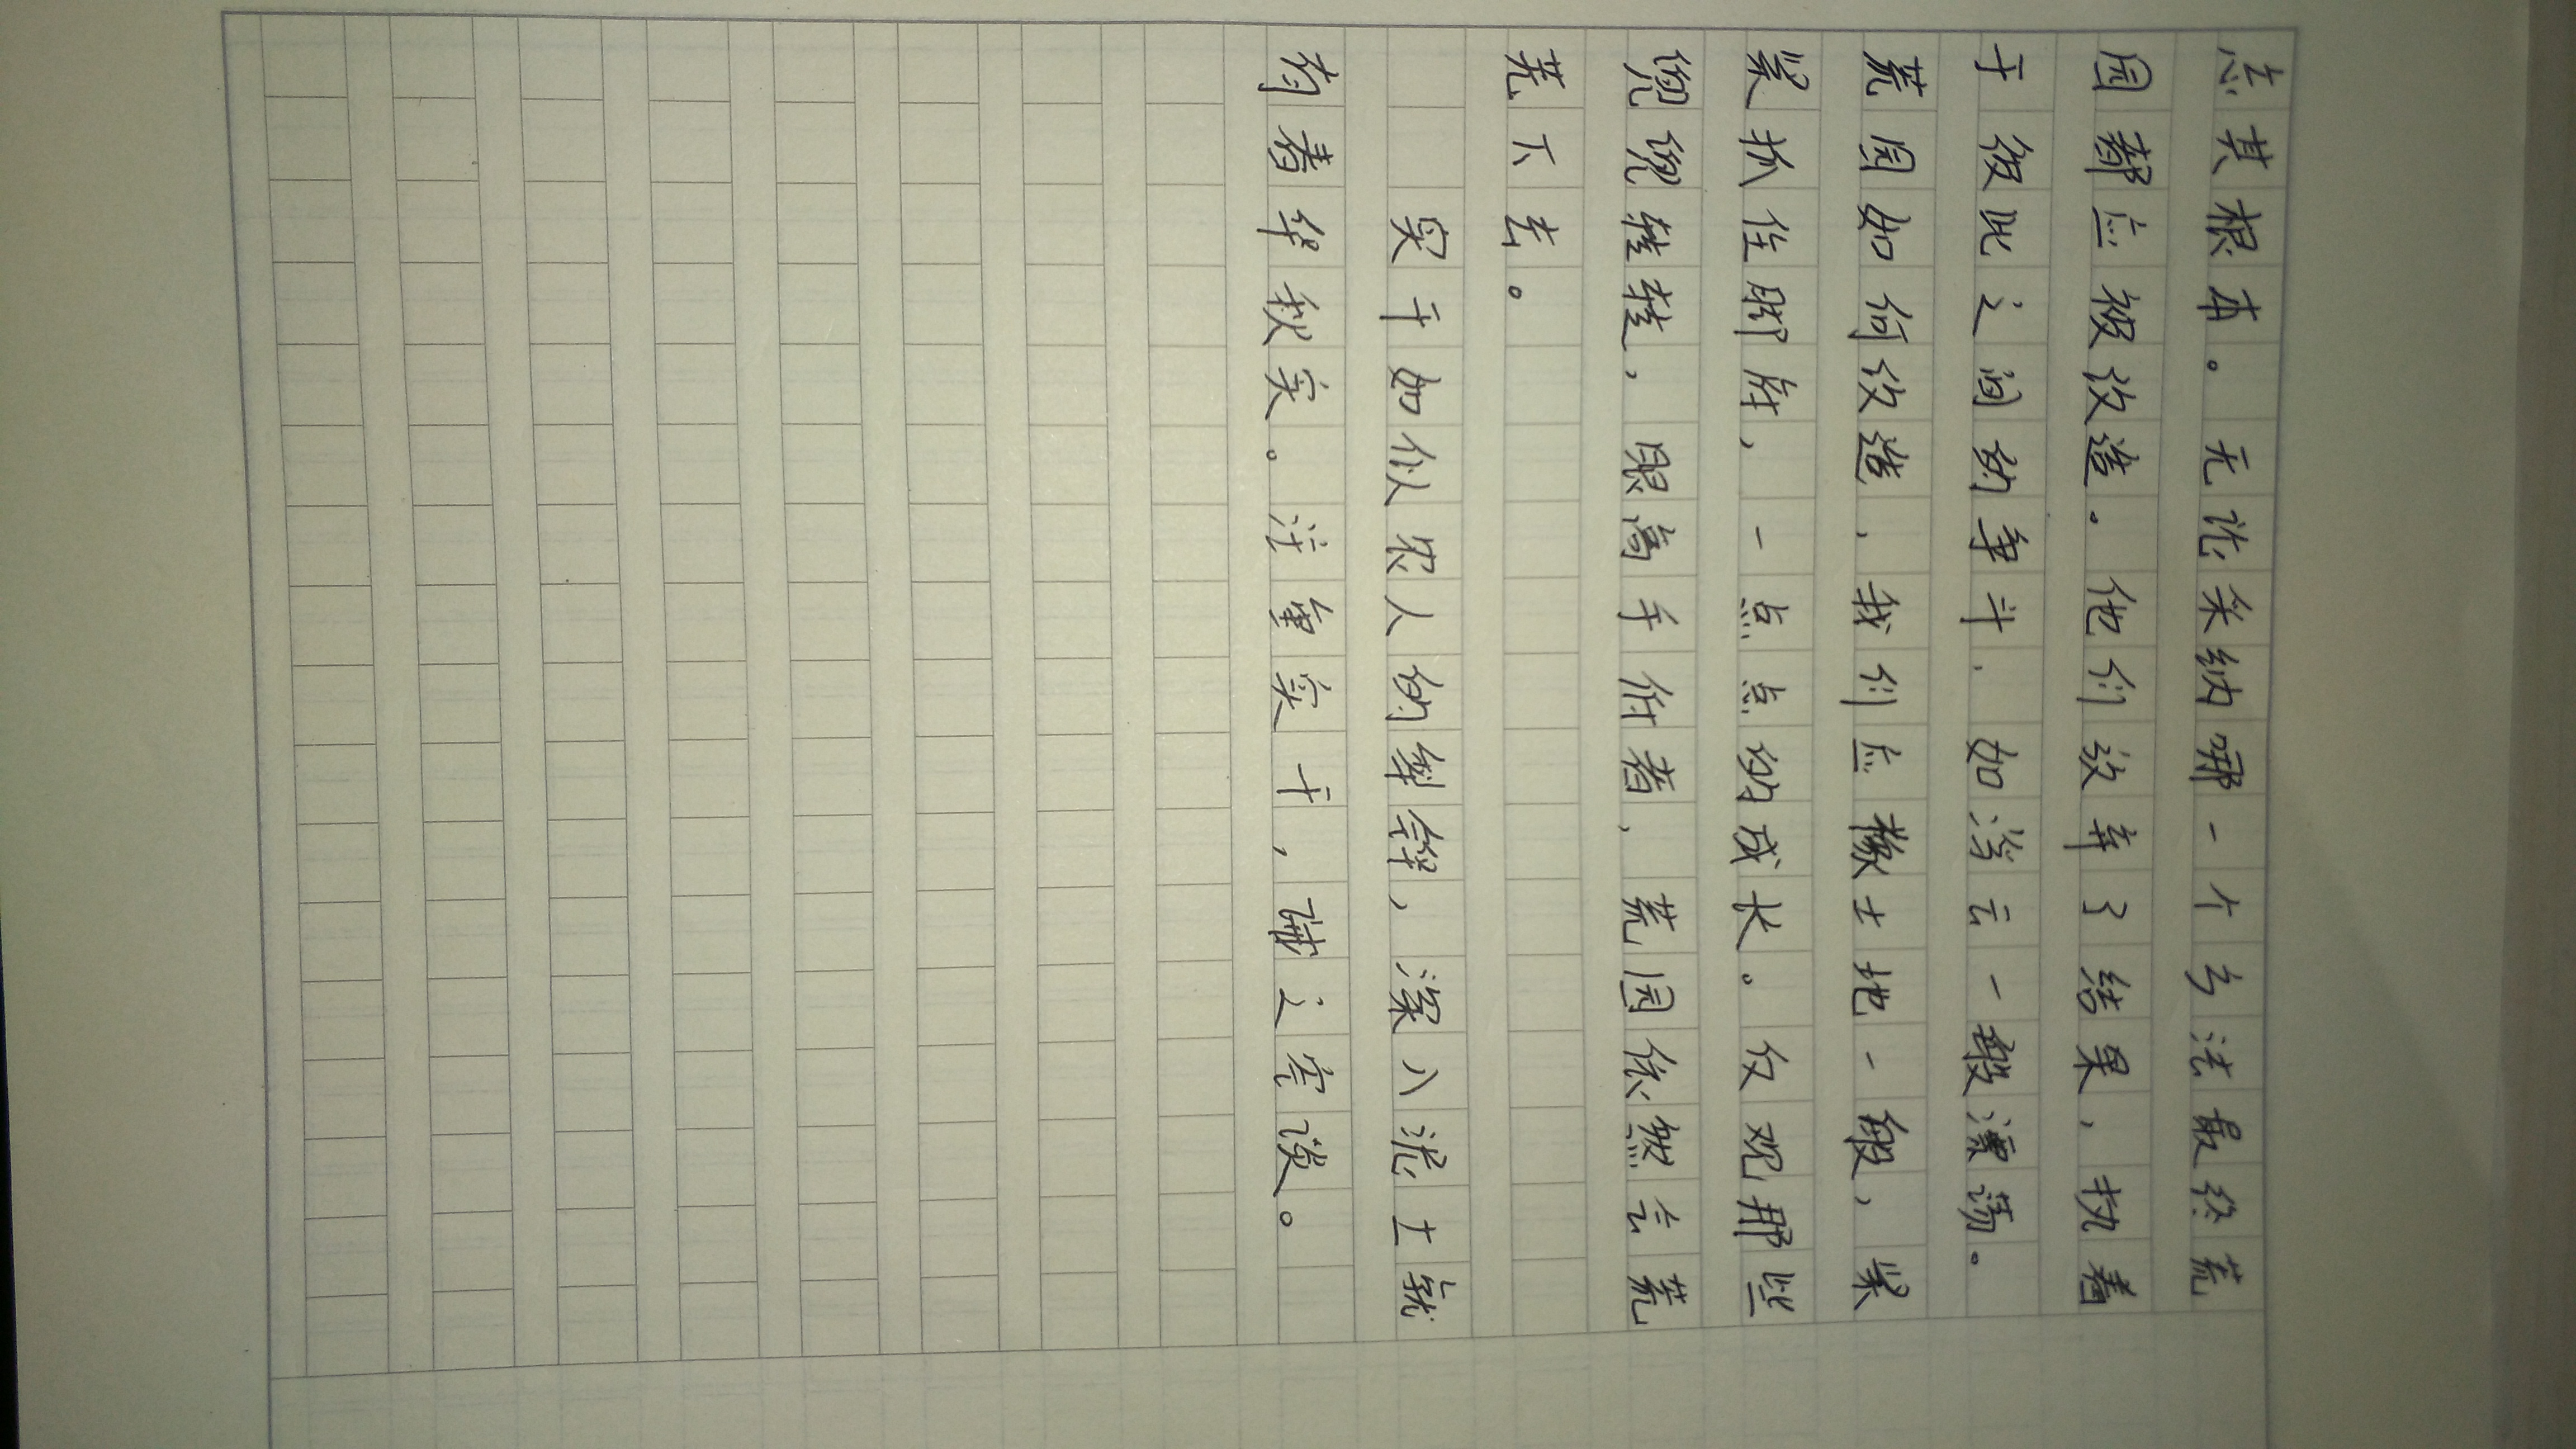 忘其根本。无论采纳哪一个方法最终荒
园都应被改造。他们放弃了结果,执着
于彼此之间的争斗.如浮云一般漂荡。
荒园如何改造,我们应像土地一般,紧
紧抓住脚跟,一点点的成长。仅观那些
兜兜转转,眼高手低者,荒园依然会荒
芜下去。
实干如似农人的犁铧,深入泥土就
有春华秋实。注重实干,谢之空谈。